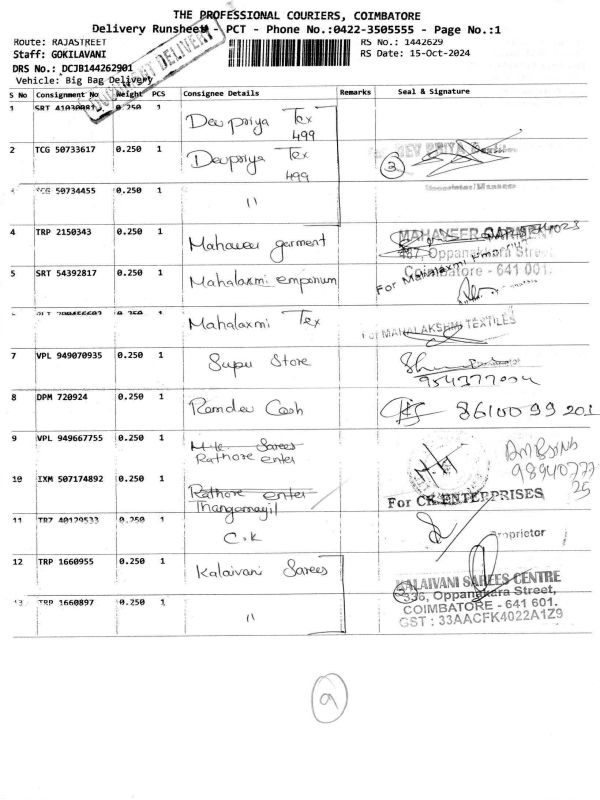 THE PROFESSIONAL COURIERS, COIMBATORE
Delivery Runsheet - PCT - Phone No.:0422-3505555 - Page No.:1
Route: RAJASTREET
RS No.: 1442629
Staff: GOKILAVANI
RS Date: 15-Oct-2024
DRS No.: DCJB144262901
Vehicle: Big Bag Delivery
DELIVERY
S No Consignment No Weight PCS Consignee Details Remarks Seal & Signature
1 SRT 0.250 1 Devpriya Tex
499
2 TCG 50733617 0.250 1 Devpriya Tex
499
DEV PRIYA
3
TCG 50734455 0.250 1 11
4 TRP 2150343 0.250 1 Mahaveer garment
MAHAVEER GARMENT
467, Oppanakara Street,
Coimbatore - 641 001.
5 SRT 54392817 0.250 1 Mahalaxmi emporium
For Mahalaxmi Emporium
0.250 1 Mahalaxmi Tex
For MAHALAKSHMI TEXTILES
7 VPL 949070935 0.250 1 Supu Store
8 DPM 720924 0.250 1 Ramdev Cash
8610099201
9 VPL 949667755 0.250 1 Sarees
Rathore enter
10 IXM 507174892 0.250 1 Rathore enter
Thangamayil
For CK ENTERPRISES
Proprietor
11 TR7 40129533 0.250 1 C.K
12 TRP 1660955 0.250 1 Kalaivani Sarees
3
KALAIVANI SAREES CENTRE
336, Oppanakara Street,
COIMBATORE - 641 601.
GST : 33AACFK4022A1Z9
13 TRP 1660897 0.250 1 11